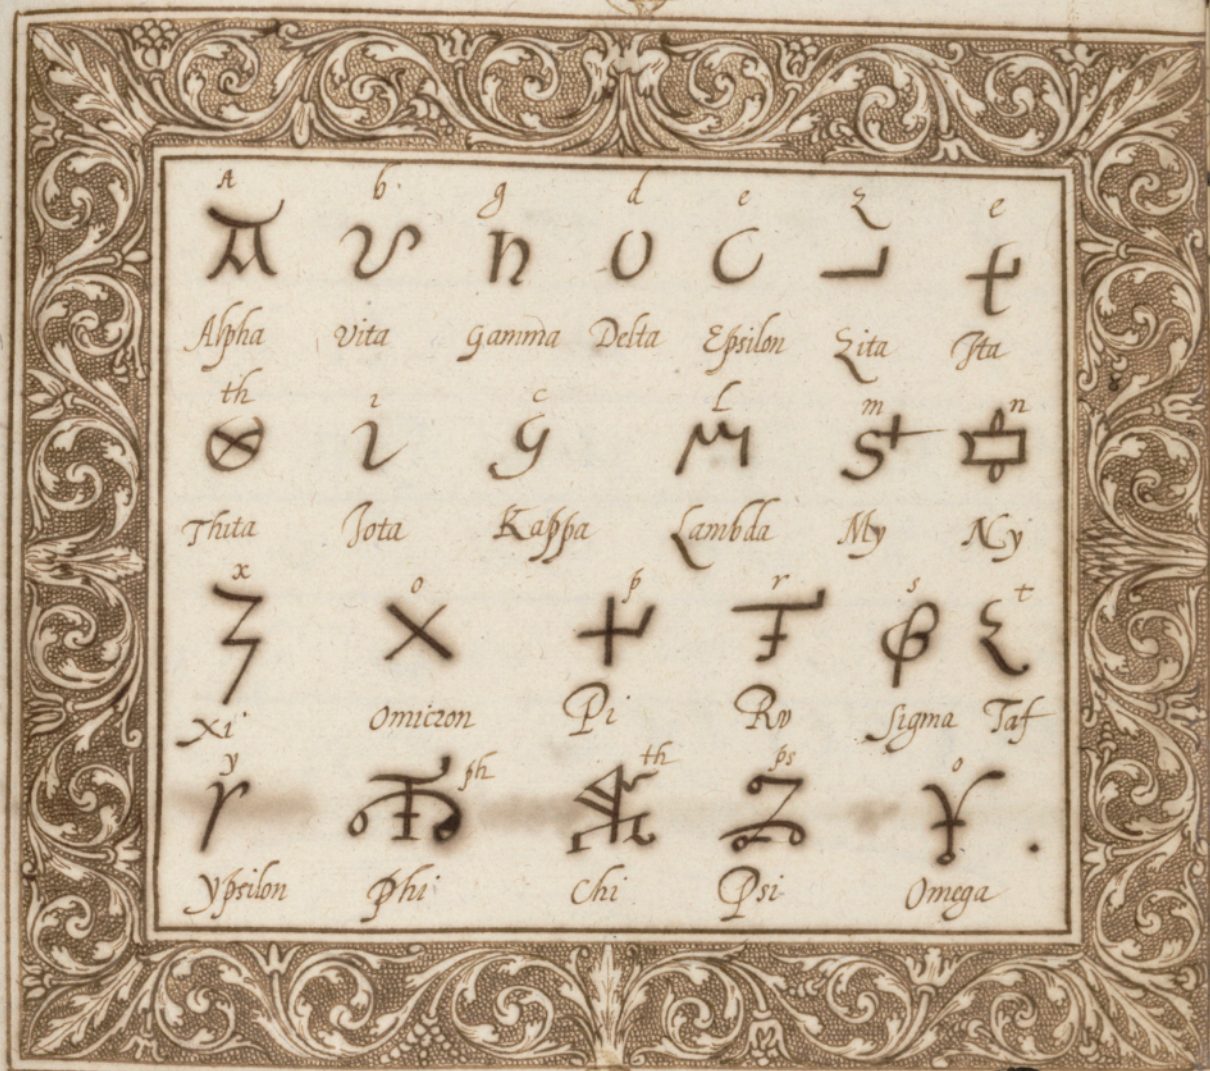 A b g d e z e
Alpha Vita Gamma Delta Epsilon Zita Ita
th i c l m n
Thita Iota Kappa Lambda My Ny
x o p r s t
Xi Omicron Pi Ro Sigma Taf
y ph th ps o
Ypsilon Phi Chi Psi Omega